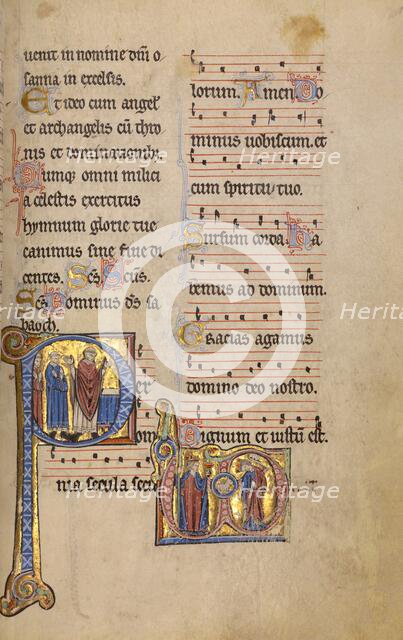 uenit in nomine dnī o
sanna in excelsis.
Et ideo cum angel'
et archangelis cū thro
nis et dominationib;
Cumq; omni milici
a celestis exercitus
hymnum glorie tue
canimus sine fine di
centes. Scs. Scūs.
Scs. Dominus ds sa
baoth.
Per
om
nia secula secu
lorum. Amen. Do
minus uobiscum. et
cum spiritu tuo.
Sursum corda. ha
bemus ad dominum.
Gracias agamus
domino deo nostro.
Dignum et iustū est.
heritage-images
Heritage
Images